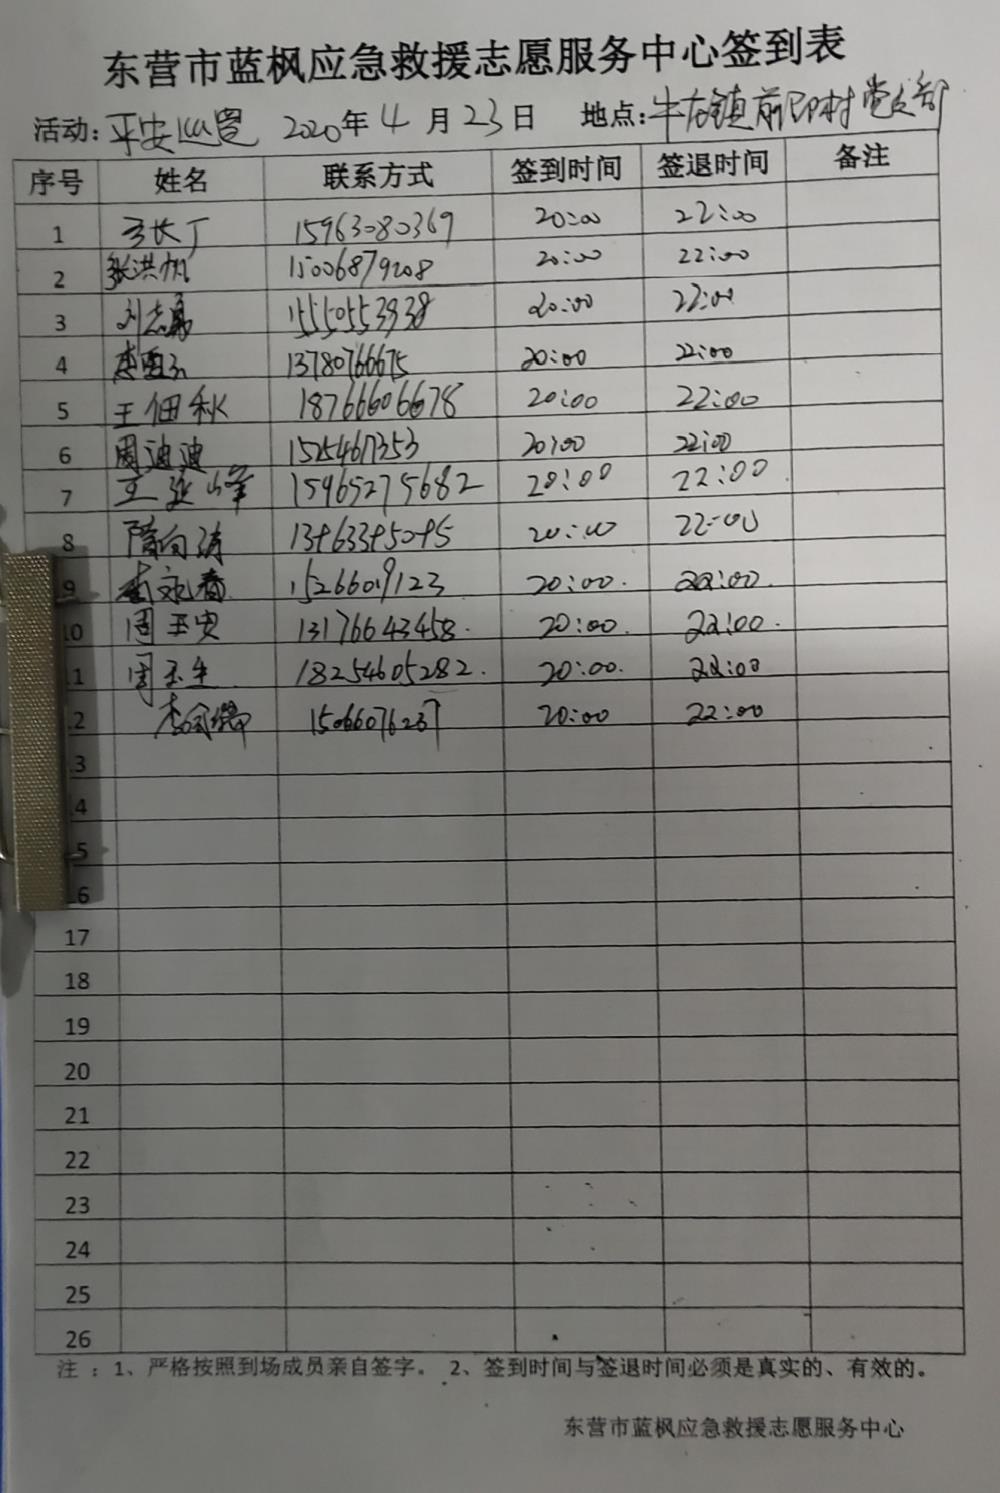 东营市蓝枫应急救援志愿服务中心签到表
活动：平安巡逻 2020年4月23日 地点：牛庄镇前邵村党支部
序号 姓名 联系方式 签到时间 签退时间 备注
1 15963080369 20:00 22:00
2 张洪帆 15006879208 20:00 22:00
3 刘志勇 15550553938 20:00 22:00
4 13780766675 20:00 22:00
5 王佃秋 18766606678 20:00 22:00
6 周迪迪 1525467353 20:00 22:00
7 王延峰 15965275682 20:00 22:00
8 隋向涛 20:00 22:00
9 李永春 15266019123 20:00. 22:00.
10 周玉安 13176643458. 20:00. 22:00.
11 周玉生 18254605282. 20:00. 22:00
12 15066076237 20:00 22:00
13
14
15
16
17
18
19
20
21
22
23
24
25
26
注：1、严格按照到场成员亲自签字。 2、签到时间与签退时间必须是真实的、有效的。
东营市蓝枫应急救援志愿服务中心